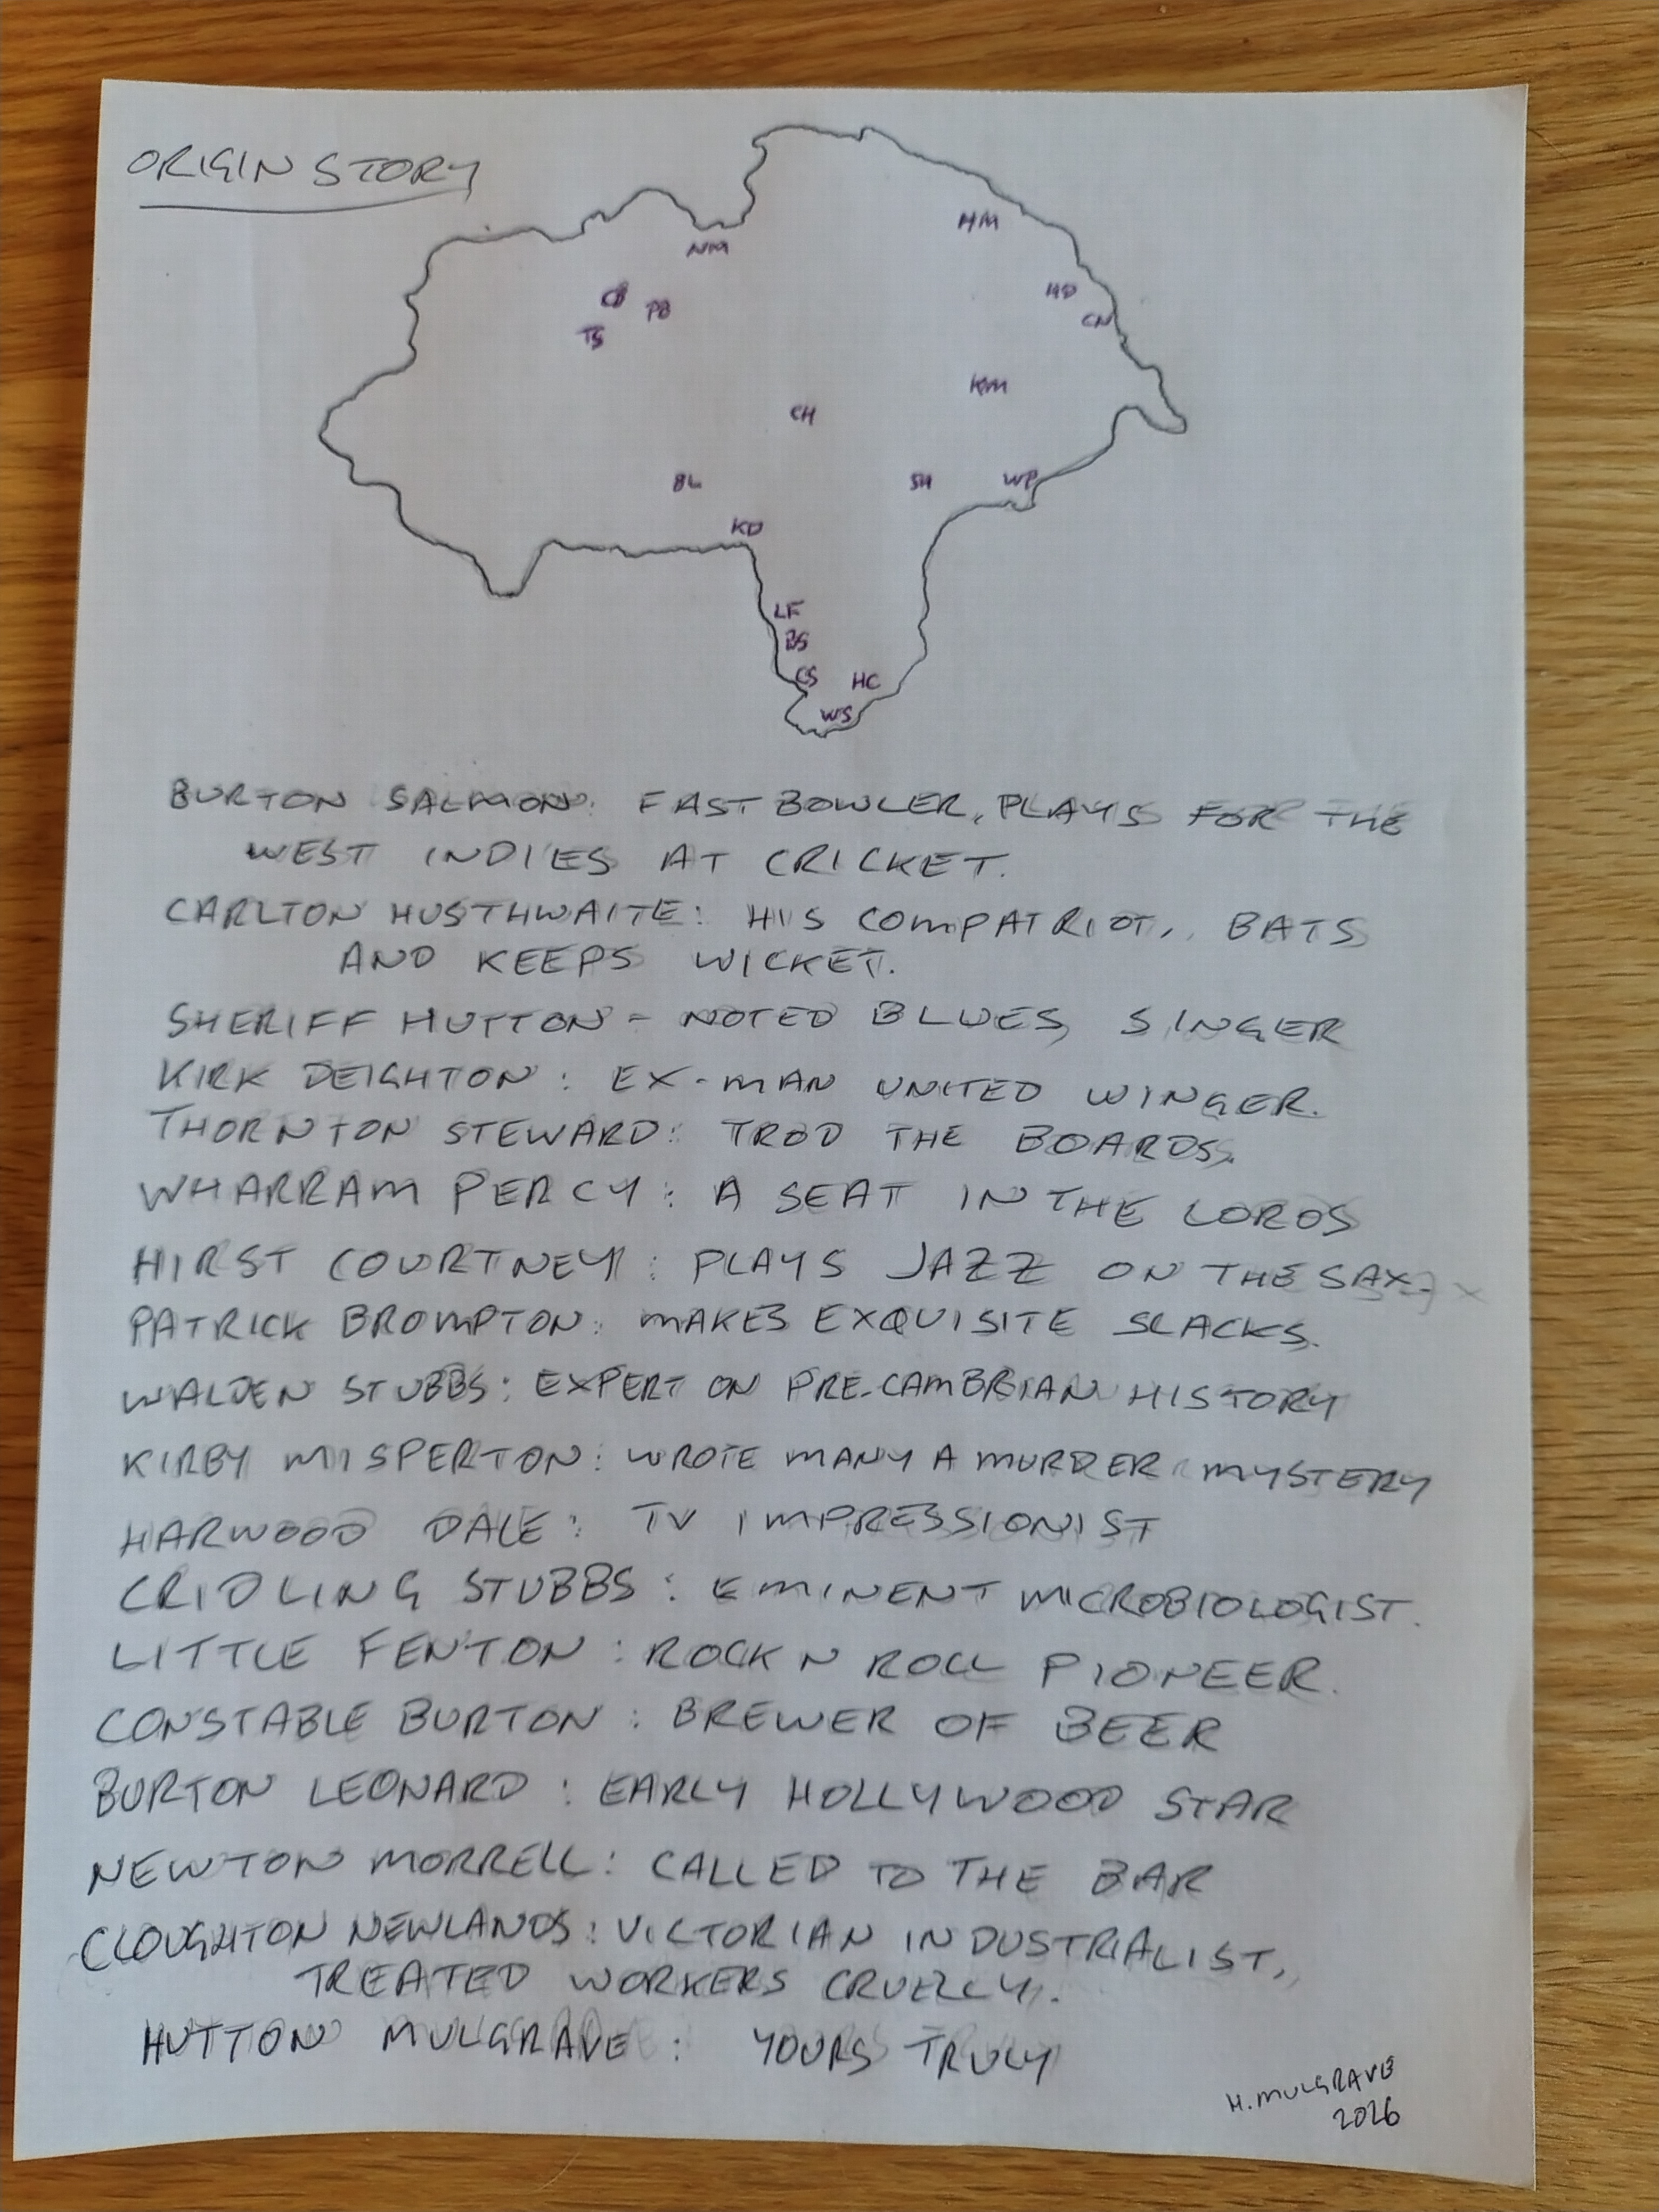 ORIGIN STORY
HM
NM
HD
CB
PB
CN
TS
KM
CH
BL
SH
WP
KD
LF
BS
CS
HC
WS
BURTON SALMON: FAST BOWLER, PLAYS FOR THE
WEST INDIES AT CRICKET.
CARLTON HUSTHWAITE: HIS COMPATRIOT, BATS
AND KEEPS WICKET.
SHERIFF HUTTON - NOTED BLUES SINGER
KIRK DEIGHTON: EX-MAN UNITED WINGER.
THORNTON STEWARD: TROD THE BOARDS.
WHARRAM PERCY: A SEAT IN THE LORDS
HIRST COURTNEY: PLAYS JAZZ ON THE SAX
PATRICK BROMPTON: MAKES EXQUISITE SLACKS.
WALDEN STUBBS: EXPERT ON PRE-CAMBRIAN HISTORY
KIRBY MISPERTON: WROTE MANY A MURDER MYSTERY
HARWOOD DALE: TV IMPRESSIONIST
CRIDLING STUBBS: EMINENT MICROBIOLOGIST.
LITTLE FENTON: ROCK N ROLL PIONEER.
CONSTABLE BURTON: BREWER OF BEER
BURTON LEONARD: EARLY HOLLYWOOD STAR
NEWTON MORRELL: CALLED TO THE BAR
CLOUGHTON NEWLANDS: VICTORIAN INDUSTRIALIST,
TREATED WORKERS CRUELLY.
HUTTON MULGRAVE: YOURS TRULY
H. MULGRAVE
2026